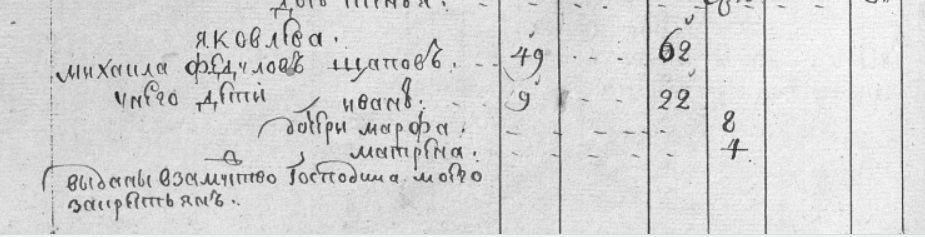 яковлева.
михаила федуловъ щаповъ. 49 62
унего дети иванъ. 9 22
дочери марфа. 8
матрена. 7
выданы взамуство Господина моего
закрестьянъ.